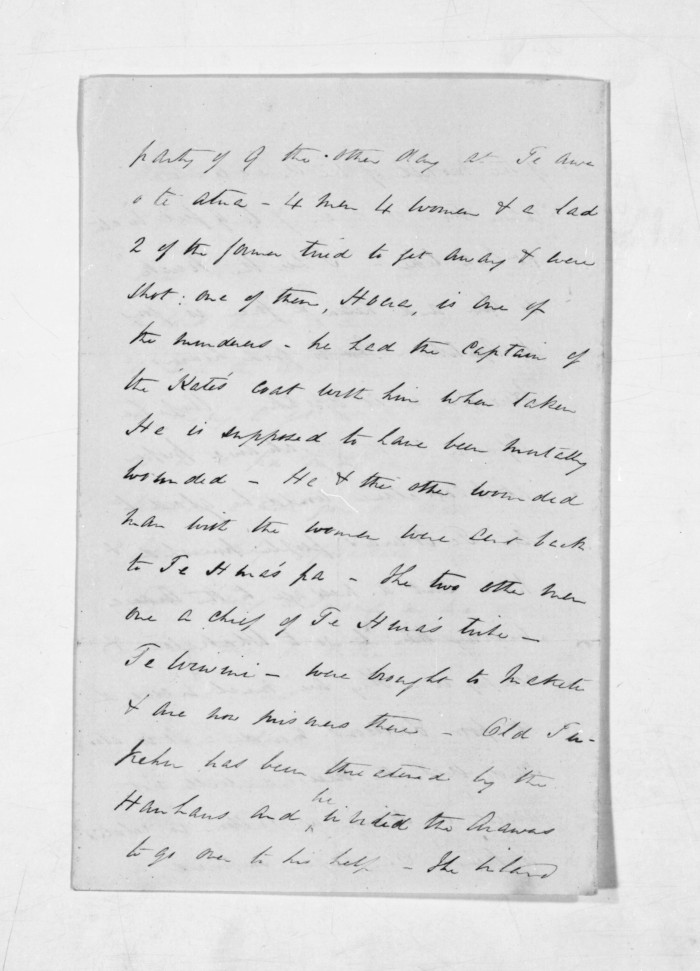 party of 9 the other day at Te Awa
o te atua - 4 men 4 women & a lad
2 of the former tried to get away & were
shot: one of them, Hoera, is one of
the murderers - he had the Captain of
the Kate's coat with him when taken
He is supposed to have been mortally
wounded - He & the other wounded
man with the women were sent back
to Te Hura's pa - The two other men
one a chief of Te Hura's tribe -
Te Wiwini - were brought to Maketu
& are now prisoners there - Old
has been threatened by the
Hauhaus and he invited the Arawas
to go over to his help - The